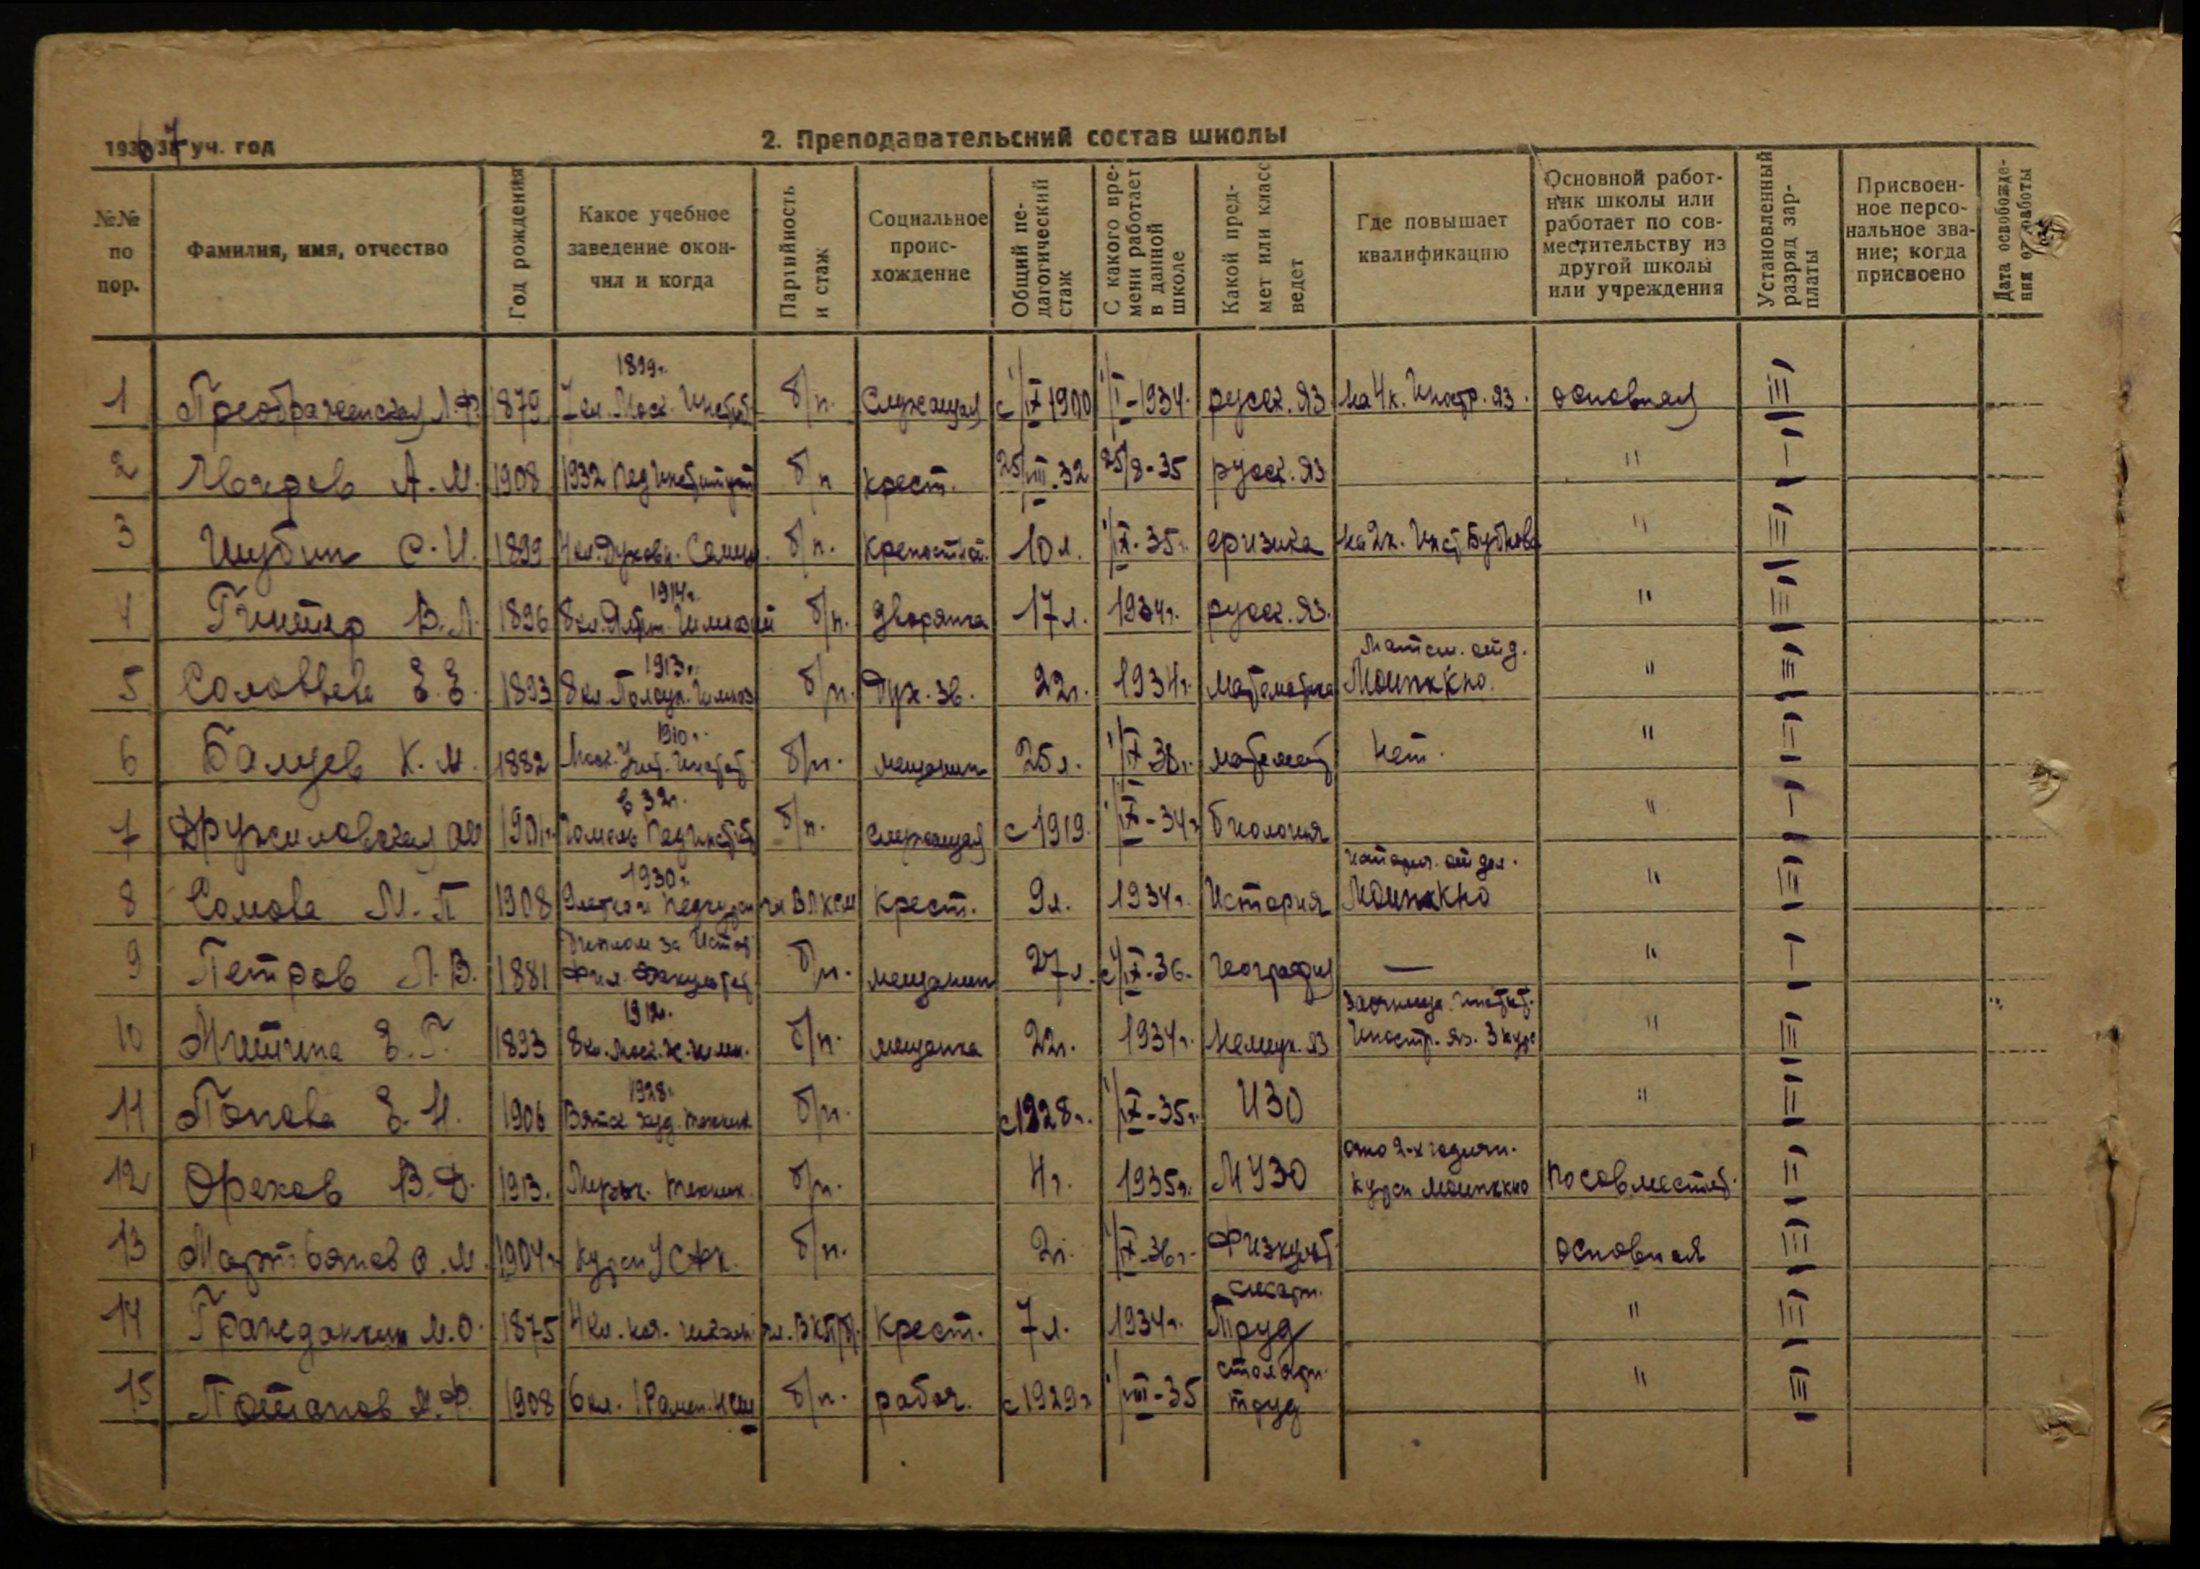 1936/37 уч. год
2. Преподавательский состав школы
№№ по пор.
Фамилия, имя, отчество
Год рождения
Какое учебное заведение окончил и когда
Партийность и стаж
Социальное происхождение
Общий педагогический стаж
С какого времени работает в данной школе
Какой предмет или класс ведет
Где повышает квалификацию
Основной работник школы или работает по совместительству из другой школы или учреждения
Установленный разряд зарплаты
Присвоенное персональное звание; когда присвоено
Дата освобождения от работы
1 Преображенская Л.Ф. 1879 1899г. 7 кл. Моск. Инстит. б/п. Служащая с 1/IX 1900 1/I-1934. русск. яз. На 4 к. Иностр. яз. основная III
2 А.М. 1908 1932 Пединститут б/п крест. 25/VIII-32 25/8-35 русск. яз. " I
3 Шубин С.И. 1899 4 кл. Духовн. Семин. б/п. 10 л. 1/IX-35г. физика На 2 к. Инст. Бубнова " III
4 В.Л. 1896 1914г. 8 кл. Гимназии б/п. дворянка 17 л. 1934г. русск. яз. " III
5 Соловьева Е.Е. 1893 1913г. 8 кл. Гимназ б/п. Дух. зв. 22г. 1934г. Математика Матем. отд. "
6 Балуев К.М. 1882 1910г. Моск. Учит. Инстит. б/п. мещанин 25 л. 1/IX-36г. математ нет. "
7 Дружиловская 1901г. в 32г. Гомель Пединстит б/п. служащая с 1919. 1/IX-34г. биология " I
8 Сомова М.П 1908 1930г. чл ВЛКСМ крест. 9 л. 1934г. История историч. отдел. "
9 Петров Л.В. 1881 Диплом за Истор. Фил. Факультет б/п. мещанин 27 л. с 1/IX-36. География — " I
10 Митина Е.Г. 1893 1912г. 8 кл. Моск. ж. гимн. б/п. мещанка 22г. 1934г. Немецк. яз Инстит. Иностр. яз. 3 курс " III
11 Попова Е.Н. 1906 1928г. Вятск худ. техник. б/п. с 1928г. 1/IX-35г. ИЗО "
12 Орехов В.Д. 1913. Музык. техник. б/п. 4г. 1935г. МУЗО 2-х годичн. курсы по совместит.
13 Мартьянов О.М. 1904г. Курсы б/п. 2г. 1/IX-36г. Физкульт основная III
14 Гражданкин М.О. 1875 4 кл. чл. ВКП(б). Крест. 7 л. 1934г. слесарн. Труд " III
15 Потапов М.Ф. 1908 6 кл. б/п. рабоч. с 1929г 1/VIII-35 столярн. труд " III